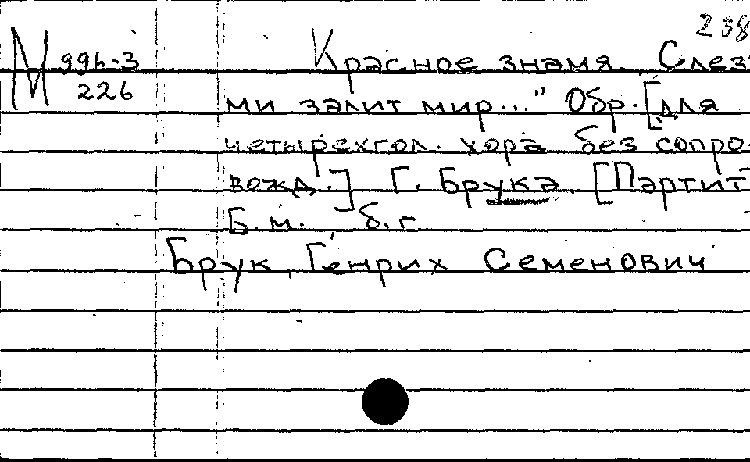 238
М 996-3 Красное знамя. Слез
226
ми залит мир..." Обр. [для
четырехгол. хора без сопро-
вожд.] Г. Брука. [Партит
Б.м. б.г.
Брук, Генрих Семенович